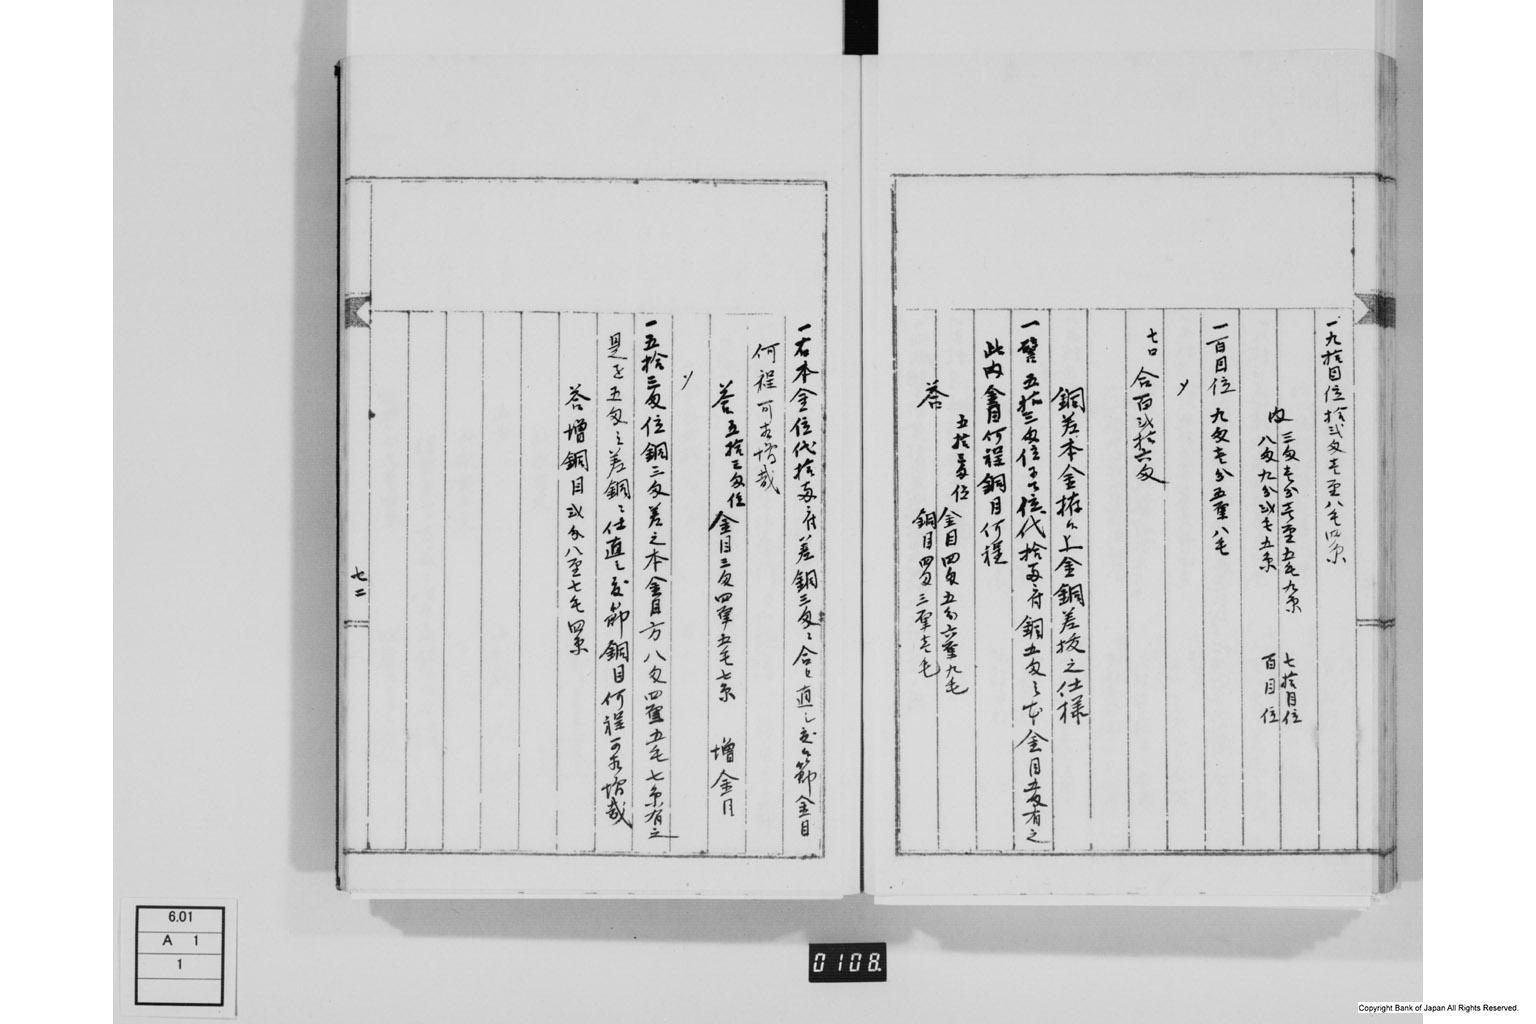 一九拾目位拾弐匁壱厘八毛四糸
内 三匁壱分壱厘五毛九糸 七拾目位
八匁九分弐毛五糸 百目位
一百目位 九匁壱分五厘八毛
〆
七口 合百弐拾六匁
銅差本金拵々上金銅差抜之仕様
一譬五拾三匁位 位代拾両ニ付銅五匁 金目 有之
此内金目何程銅目何程
五拾三匁位 金目四匁五分六厘九毛
答 銅目四匁三厘壱毛
一右本金位代拾両ニ付差銅三匁 合 直 節金目
何程可有増哉
答五拾三匁位 金目三匁四厘五毛七糸 増金目
〆
一五拾三匁位銅三匁差之本金目方八匁四厘五毛七糸有之
是を五匁之差銅ニ仕直 節銅目何程可有増哉
答増銅目弐分八厘七毛四糸
七二
0108
6.01
A 1
1
Copyright Bank of Japan All Rights Reserved.